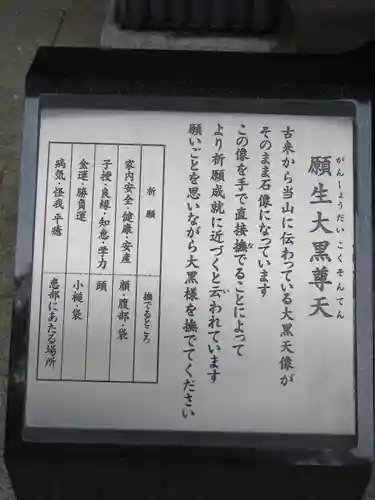 願生大黒尊天
がんしょうだいこくそんてん
古来から当山に伝わっている大黒天像が
そのまま石像になっています
この像を手で直接撫でることによって
な
より祈願成就に近づくと云われています
い
願いごとを思いながら大黒様を撫でてください
祈願 撫でるところ
家内安全・健康・安産 顔・腹部・袋
子授・良縁・知恵・学力 頭
金運・勝負運 小槌・袋
病気・怪我平癒 患部にあたる場所